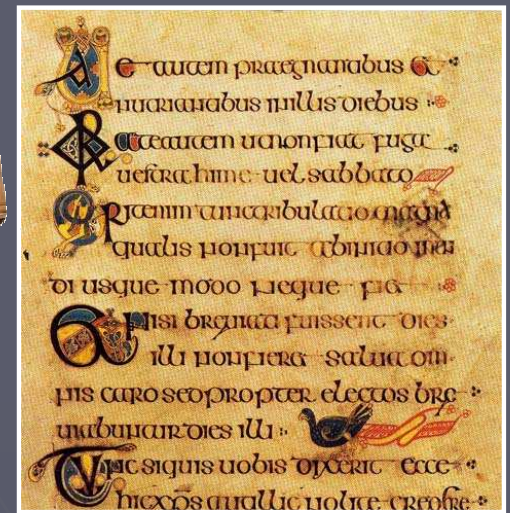 Ue autem praegnantibus et
nutriantibus in illis diebus
Orate autem ut non fiat fuga
uestra hime uel sabbato
Erit enim tunc tribulatio magna
qualis non fuit ab initio mun
di usque modo neque fiet
Et nisi breuiati fuissent dies
illi non fieret salua om
nis caro sed propter electos bre
uiabuntur dies illi
Tunc siquis uobis dixerit ecce
hic xps aut illic nolite credere